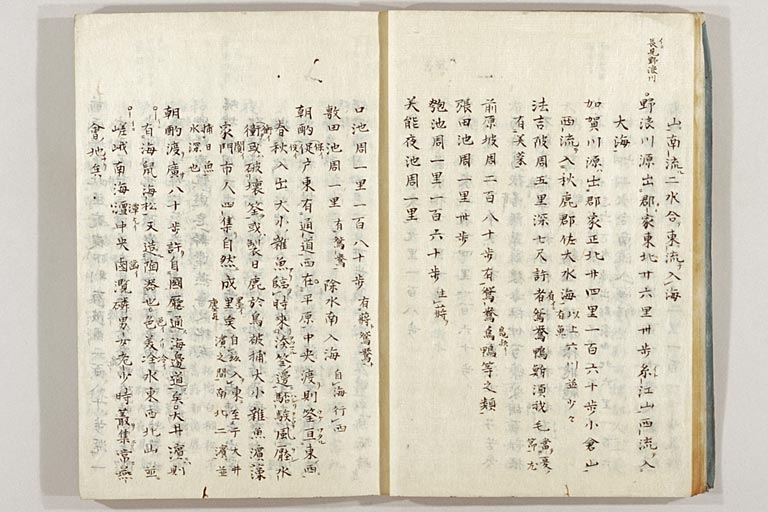 長見野浪川
山南流二水合東流入海
野浪川源出郡家東北廿六里卅歩糸江山西流入
大海
加賀川源出郡家正北廿四里一百六十歩小倉山
西流入秋鹿郡佐大水海 以上六川並少々 有魚
法吉陂周五里深七尺許者鴛鴦鳧鴨鮒須我毛 當夏 節尤
有美菜
前原坡周二百八十歩有鴛鴦鳧鴨等之類
張田池周一里卅歩
匏池周一里一百六十歩 生蔣
美能夜池周一里
口池周一里一百八十歩 有蔣鴛鴦
敷田池周一里 有鴛鴦 除水南入海 自海行西
朝酌促戸東有通道西在平原中央渡則筌亘東西
春秋入出大小雜魚臨時來湊筌邊駈駭風壓水
衝或破壞筌或製日鹿於鳥被捕大小雜魚濱藻
家闐市人四集自然成里矣 自茲入東至于大井 濱之間南北二濱並
捕日魚 水深也
朝酌渡廣八十歩許自國廳通海邊道矣大井濱則
有海鼠海松又造陶器也邑美冷水東西北山並
嵯峨南海澶中央鹵灠磷男女老少時叢集常燕
會地矣